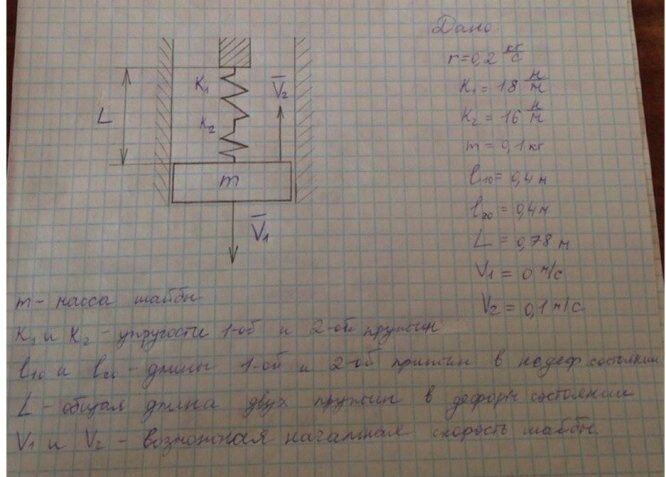 Дано
r=0,2 кг/с
K₁ = 18 Н/м
K₂ = 16 Н/м
m = 0,1 кг
l₁₀ = 0,4 м
l₂₀ = 0,4 м
L = 0,78 м
V₁ = 0 м/с
V₂ = 0,1 м/с
K₁
K₂
V̅₂
L
m
V̅₁
m - масса шайбы
K₁ и K₂ - упругости 1-ой и 2-ой пружин
l₁₀ и l₂₀ - длины 1-ой и 2-ой пржин в недеф состоянии
L - общая длина двух пружин в деформ состоянии
V₁ и V₂ - возможная начальная скорость шайбы